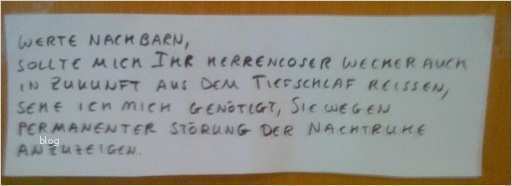 WERTE NACHBARN,
SOLLTE MICH IHR HERRENLOSER WECKER AUCH
IN ZUKUNFT AUS DEM TIEFSCHLAF REISSEN,
SEHE ICH MICH GENÖTIGT, SIE WEGEN
PERMANENTER STÖRUNG DER NACHTRUHE
ANZUZEIGEN.
blog